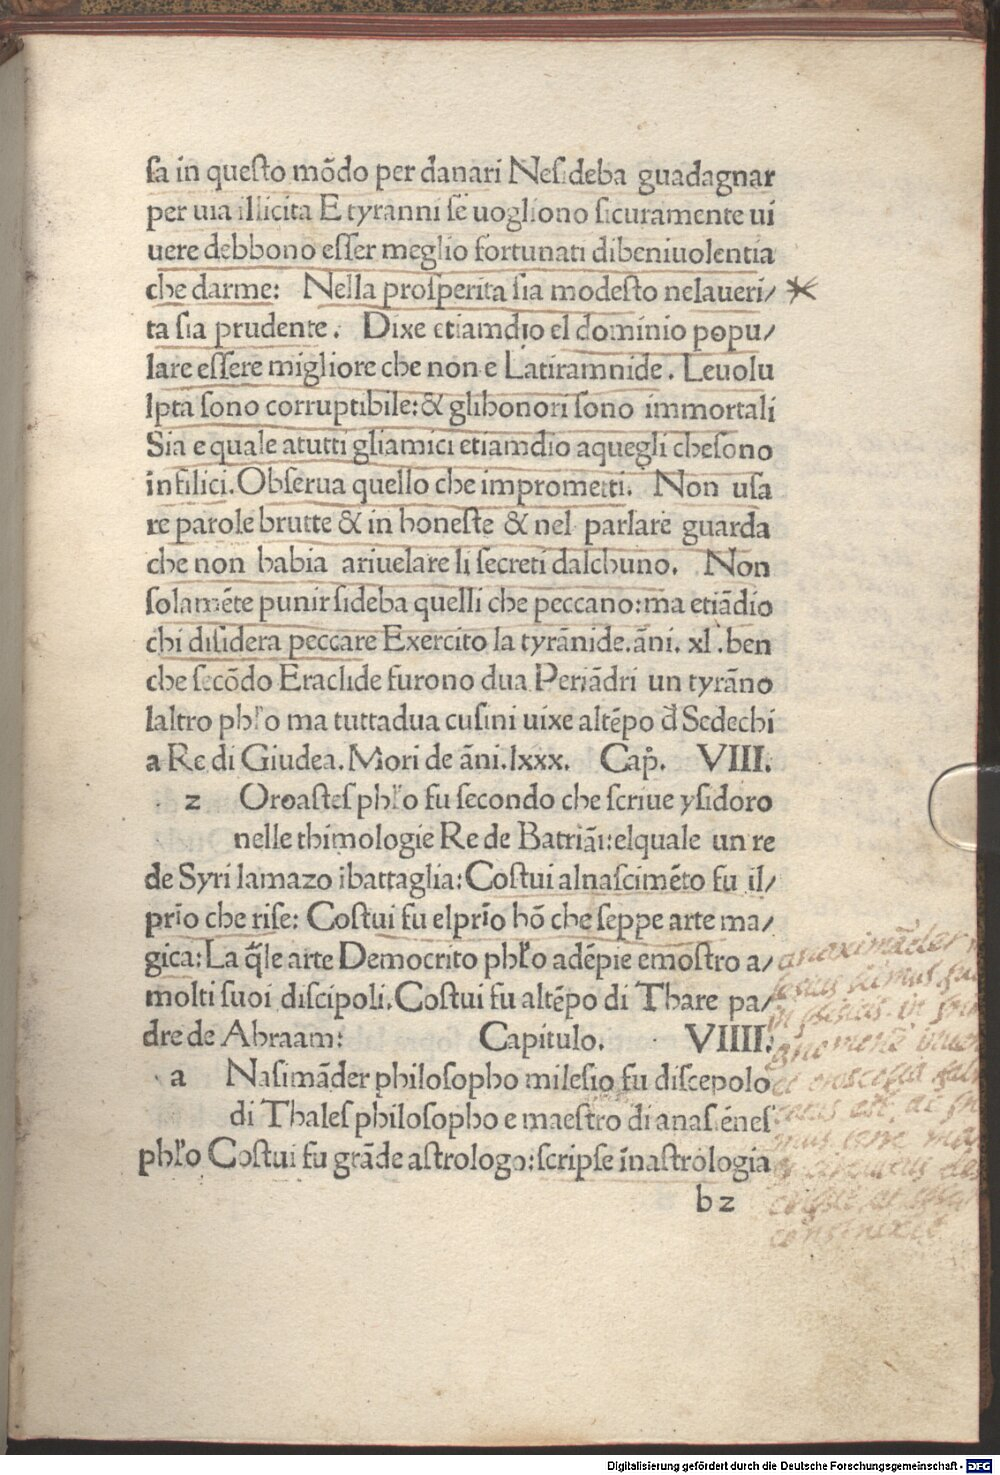 sa in questo mõdo per danari Nesideba guadagnar
per uia illicita E tyranni se uogliono sicuramente ui
uere debbono esser meglio fortunati dibeniuolentia
che darme: Nella prosperita sia modesto nelaueri/
ta sia prudente. Dixe etiamdio el dominio popu/
lare essere migliore che non e Latiramnide. Leuolu
lpta sono corruptibile:& glihonori sono immortali
Sia e quale atutti gliamici etiamdio aquegli chesono
infilici. Obserua quello che imprometti. Non usa
re parole brutte & in honeste & nel parlare guarda
che non habia ariuelare li secreti dalchuno. Non
solamẽte punir sideba quelli che peccano: ma etiãdio
chi disidera peccare Exercito la tyrãnide.ãni. xl.ben
che secõdo Eraclide furono dua Periãdri un tyrãno
laltro phl'o ma tuttadua cusini uixe altẽpo đ Sedechi
a Re di Giudea. Mori de ãni.lxxx. Cap. VIII.
z Oroastes phl'o fu secondo che scriue ysidoro
nelle thimologie Re de Batriãi:elquale un re
de Syri lamazo ibattaglia: Costui alnascimẽto fu il/
prĩo che rise: Costui fu elprĩo hõ che seppe arte ma/
gica: La q̃le arte Democrito phl'o adẽpie emostro a/
molti suoi discipoli. Costui fu altẽpo di Thare pa/
dre de Abraam: Capitulo. VIIII.
a Nasimãder philosopho milesio fu discepolo
di Thales philosopho e maestro di anasiẽnes
phl'o Costui fu grãde astrologo:scripse ĩnastrologia
b z
anaximãder
in
et